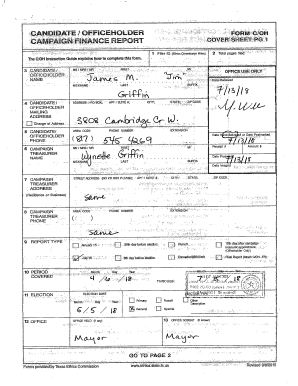 CANDIDATE / OFFICEHOLDER
CAMPAIGN FINANCE REPORT
FORM C/OH
COVER SHEET PG 1
The C/OH Instruction Guide explains how to complete this form.
1 Filer ID (Ethics Commission Filers)
2 Total pages filed:
3 CANDIDATE /
OFFICEHOLDER
NAME
MS / MRS / MR FIRST MI
James M.
NICKNAME LAST SUFFIX
"Jim"
Griffin
OFFICE USE ONLY
Date Received
7/13/18
4 CANDIDATE /
OFFICEHOLDER
MAILING
ADDRESS
Change of Address
ADDRESS / PO BOX; APT / SUITE #; CITY; STATE; ZIP CODE
3808 Cambridge Cr W.
5 CANDIDATE/
OFFICEHOLDER
PHONE
AREA CODE PHONE NUMBER EXTENSION
(817) 545 4269
Date Hand-delivered or Date Postmarked
7/13/18
6 CAMPAIGN
TREASURER
NAME
MS / MRS / MR FIRST MI
Lynette Griffin
NICKNAME LAST SUFFIX
Receipt # Amount $
Date Processed
7/13/18
7 CAMPAIGN
TREASURER
ADDRESS
(Residence or Business)
STREET ADDRESS (NO PO BOX PLEASE); APT / SUITE #; CITY; STATE; ZIP CODE
same
8 CAMPAIGN
TREASURER
PHONE
AREA CODE PHONE NUMBER EXTENSION
( )
same
9 REPORT TYPE
January 15
30th day before election
Runoff
15th day after campaign
treasurer appointment
(Officeholder Only)
July 15
8th day before election
Exceeded $500 limit
Final Report (Attach C/OH - FR)
10 PERIOD
COVERED
Month Day Year
THROUGH
11 ELECTION
ELECTION DATE
Month Day Year
6/5/18
ELECTION TYPE
Primary
Runoff
Other
Description
General
Special
12 OFFICE
OFFICE HELD (if any)
Mayor
13 OFFICE SOUGHT (if known)
Mayor
GO TO PAGE 2
Forms provided by Texas Ethics Commission
www.ethics.state.tx.us